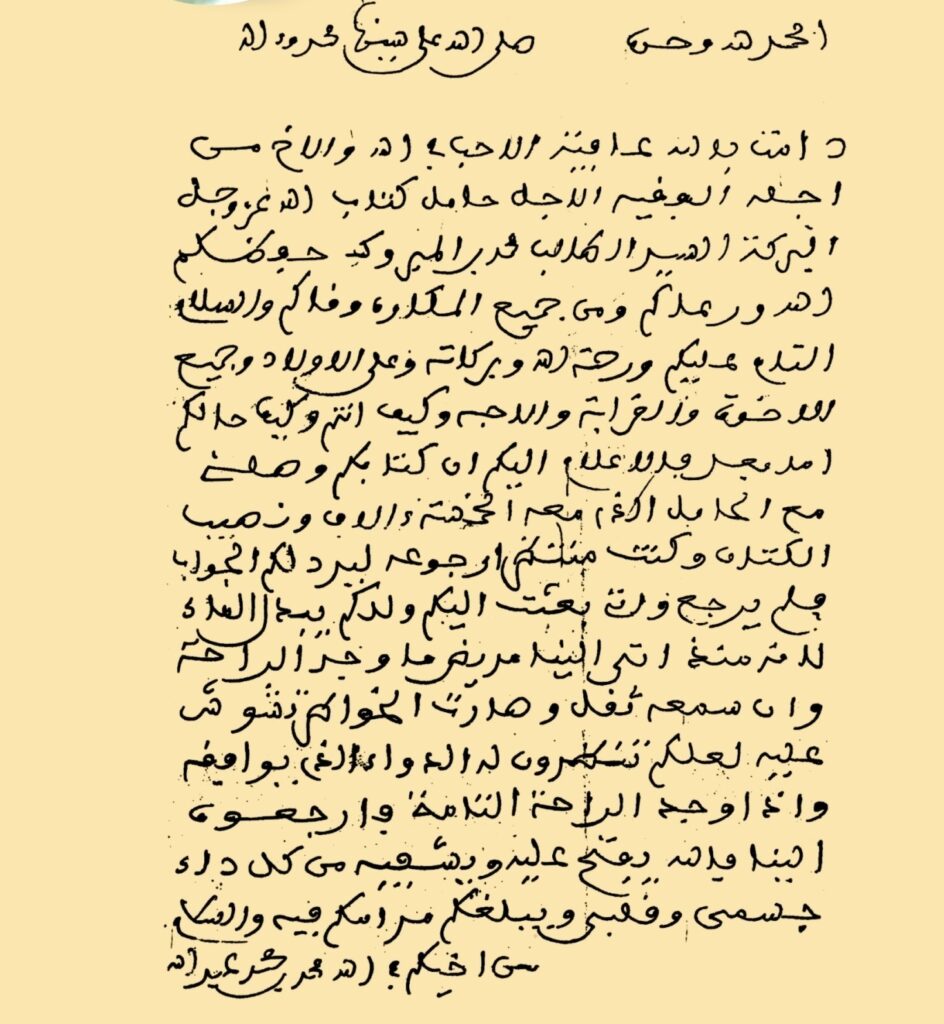 الحمد لله وحده صلى الله على نبينا محمد وءاله
الاحباء في الله والاخ من
اجله الفقيه الاجل حامل كتاب الله عز وجل
البركة السيد الطالب محمد بن المبروك حفظكم
الله ورعاكم ومن جميع المكاره وقاكم والسلام
التام عليكم ورحمة الله وبركاته وعلى الاولاد وجميع
الاخوة والقرابة والاحبة وكيف انتم وكيف حالكم
اما بعد فالاعلام اليكم ان كتابكم وصلني
مع الحامل الذي معه الخمسة ءالاف وذهب
الكتان وكنت منتظر ارجوعه ليرد لكم الجواب
فلم يرجع وان بعثت اليكم ولدكم
لانه منذ اتى الينا مريض ما وجد الراحة
وان سمعه ثقل وصارت الخواطر تشوش
عليه لعلكم تنظرون له الدواء الذي يوافقه
واذا وجد الراحة التامة فارجعوه
الينا فالله يفتح عليه ويشفيه من كل داء
جسمي وقلبي ويبلغكم مرامكم فيه والسلام
من اخيكم في الله محمد بن عبد الله